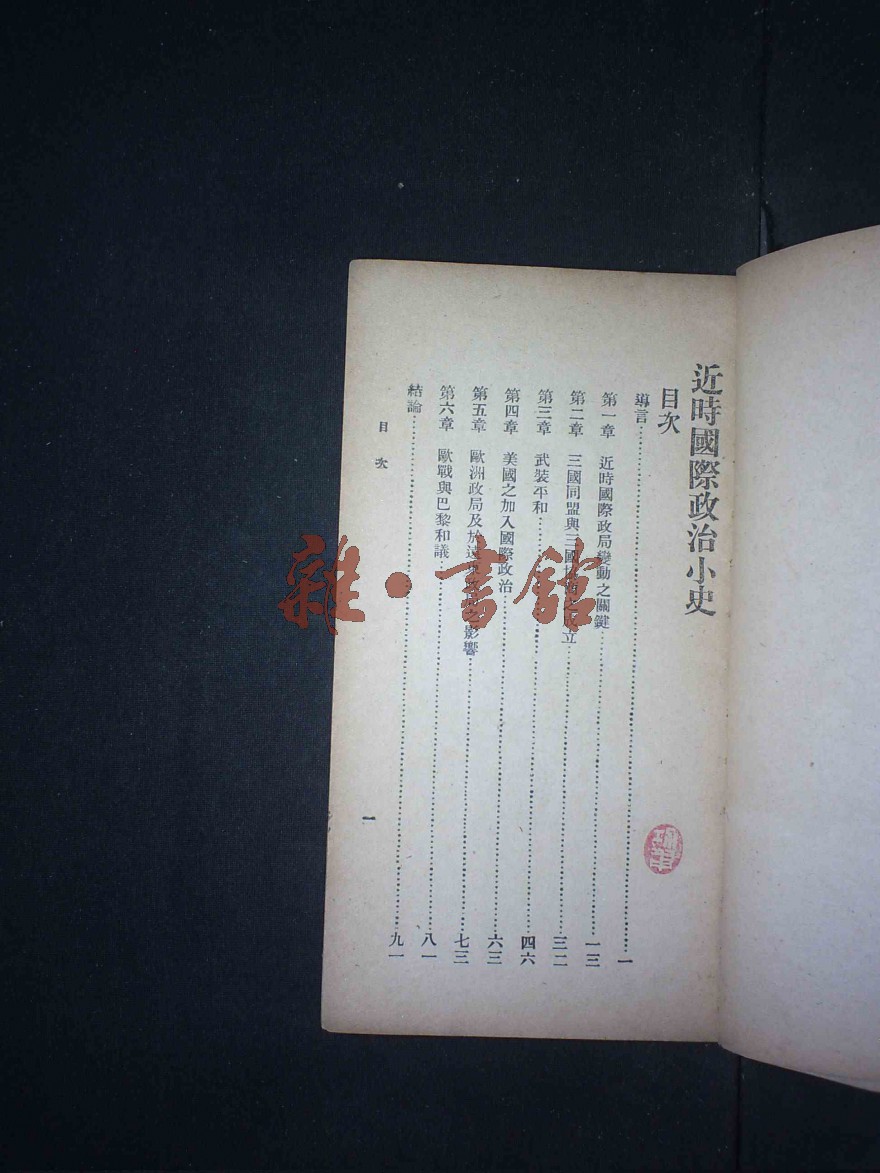 近時國際政治小史
目次
導言……一
第一章 近時國際政局變動之關鍵……一三
第二章 三國同盟與三國協商之成立……三二
第三章 武裝平和……四六
第四章 美國之加入國際政治……六三
第五章 歐洲政局及於遠東政局之影響……七三
第六章 歐戰與巴黎和議……八一
結論……九一
目次
一
雜·書館